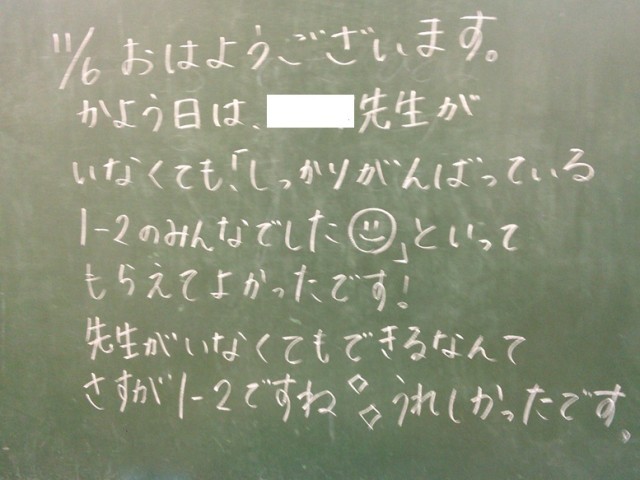 11/6 おはようございます。
かよう日は、先生が
いなくても!「しっかりがんばっている
1-2のみんなでした☺」といって
もらえてよかったです!
先生がいなくてもできるなんて
さすが1-2ですね◇◇うれしかったです。